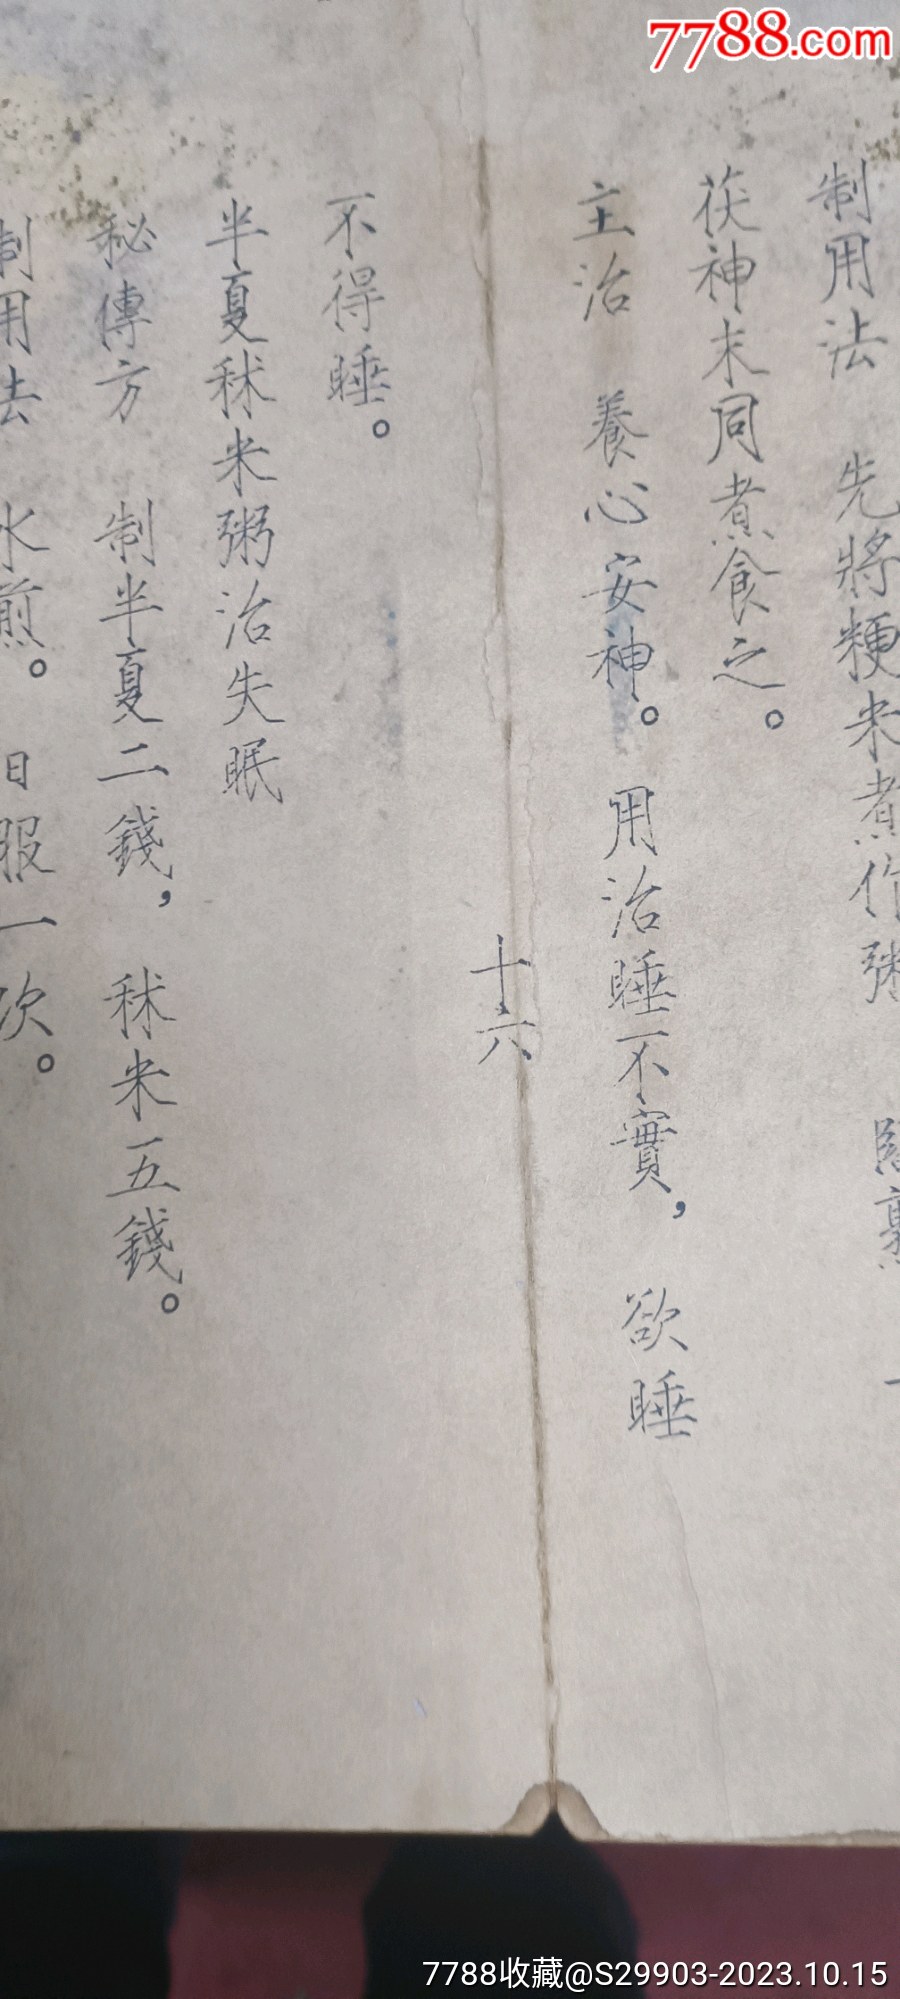 7788.com
制用法 先將粳米煮作粥 臨熟
茯神末同煮食之。
主治 養心安神。用治睡不實，欲睡
不得睡。
十六
半夏秫米粥治失眠
秘傳方 制半夏二錢，秫米五錢。
制用法 水煎。日服一次。
7788收藏@S29903-2023.10.15